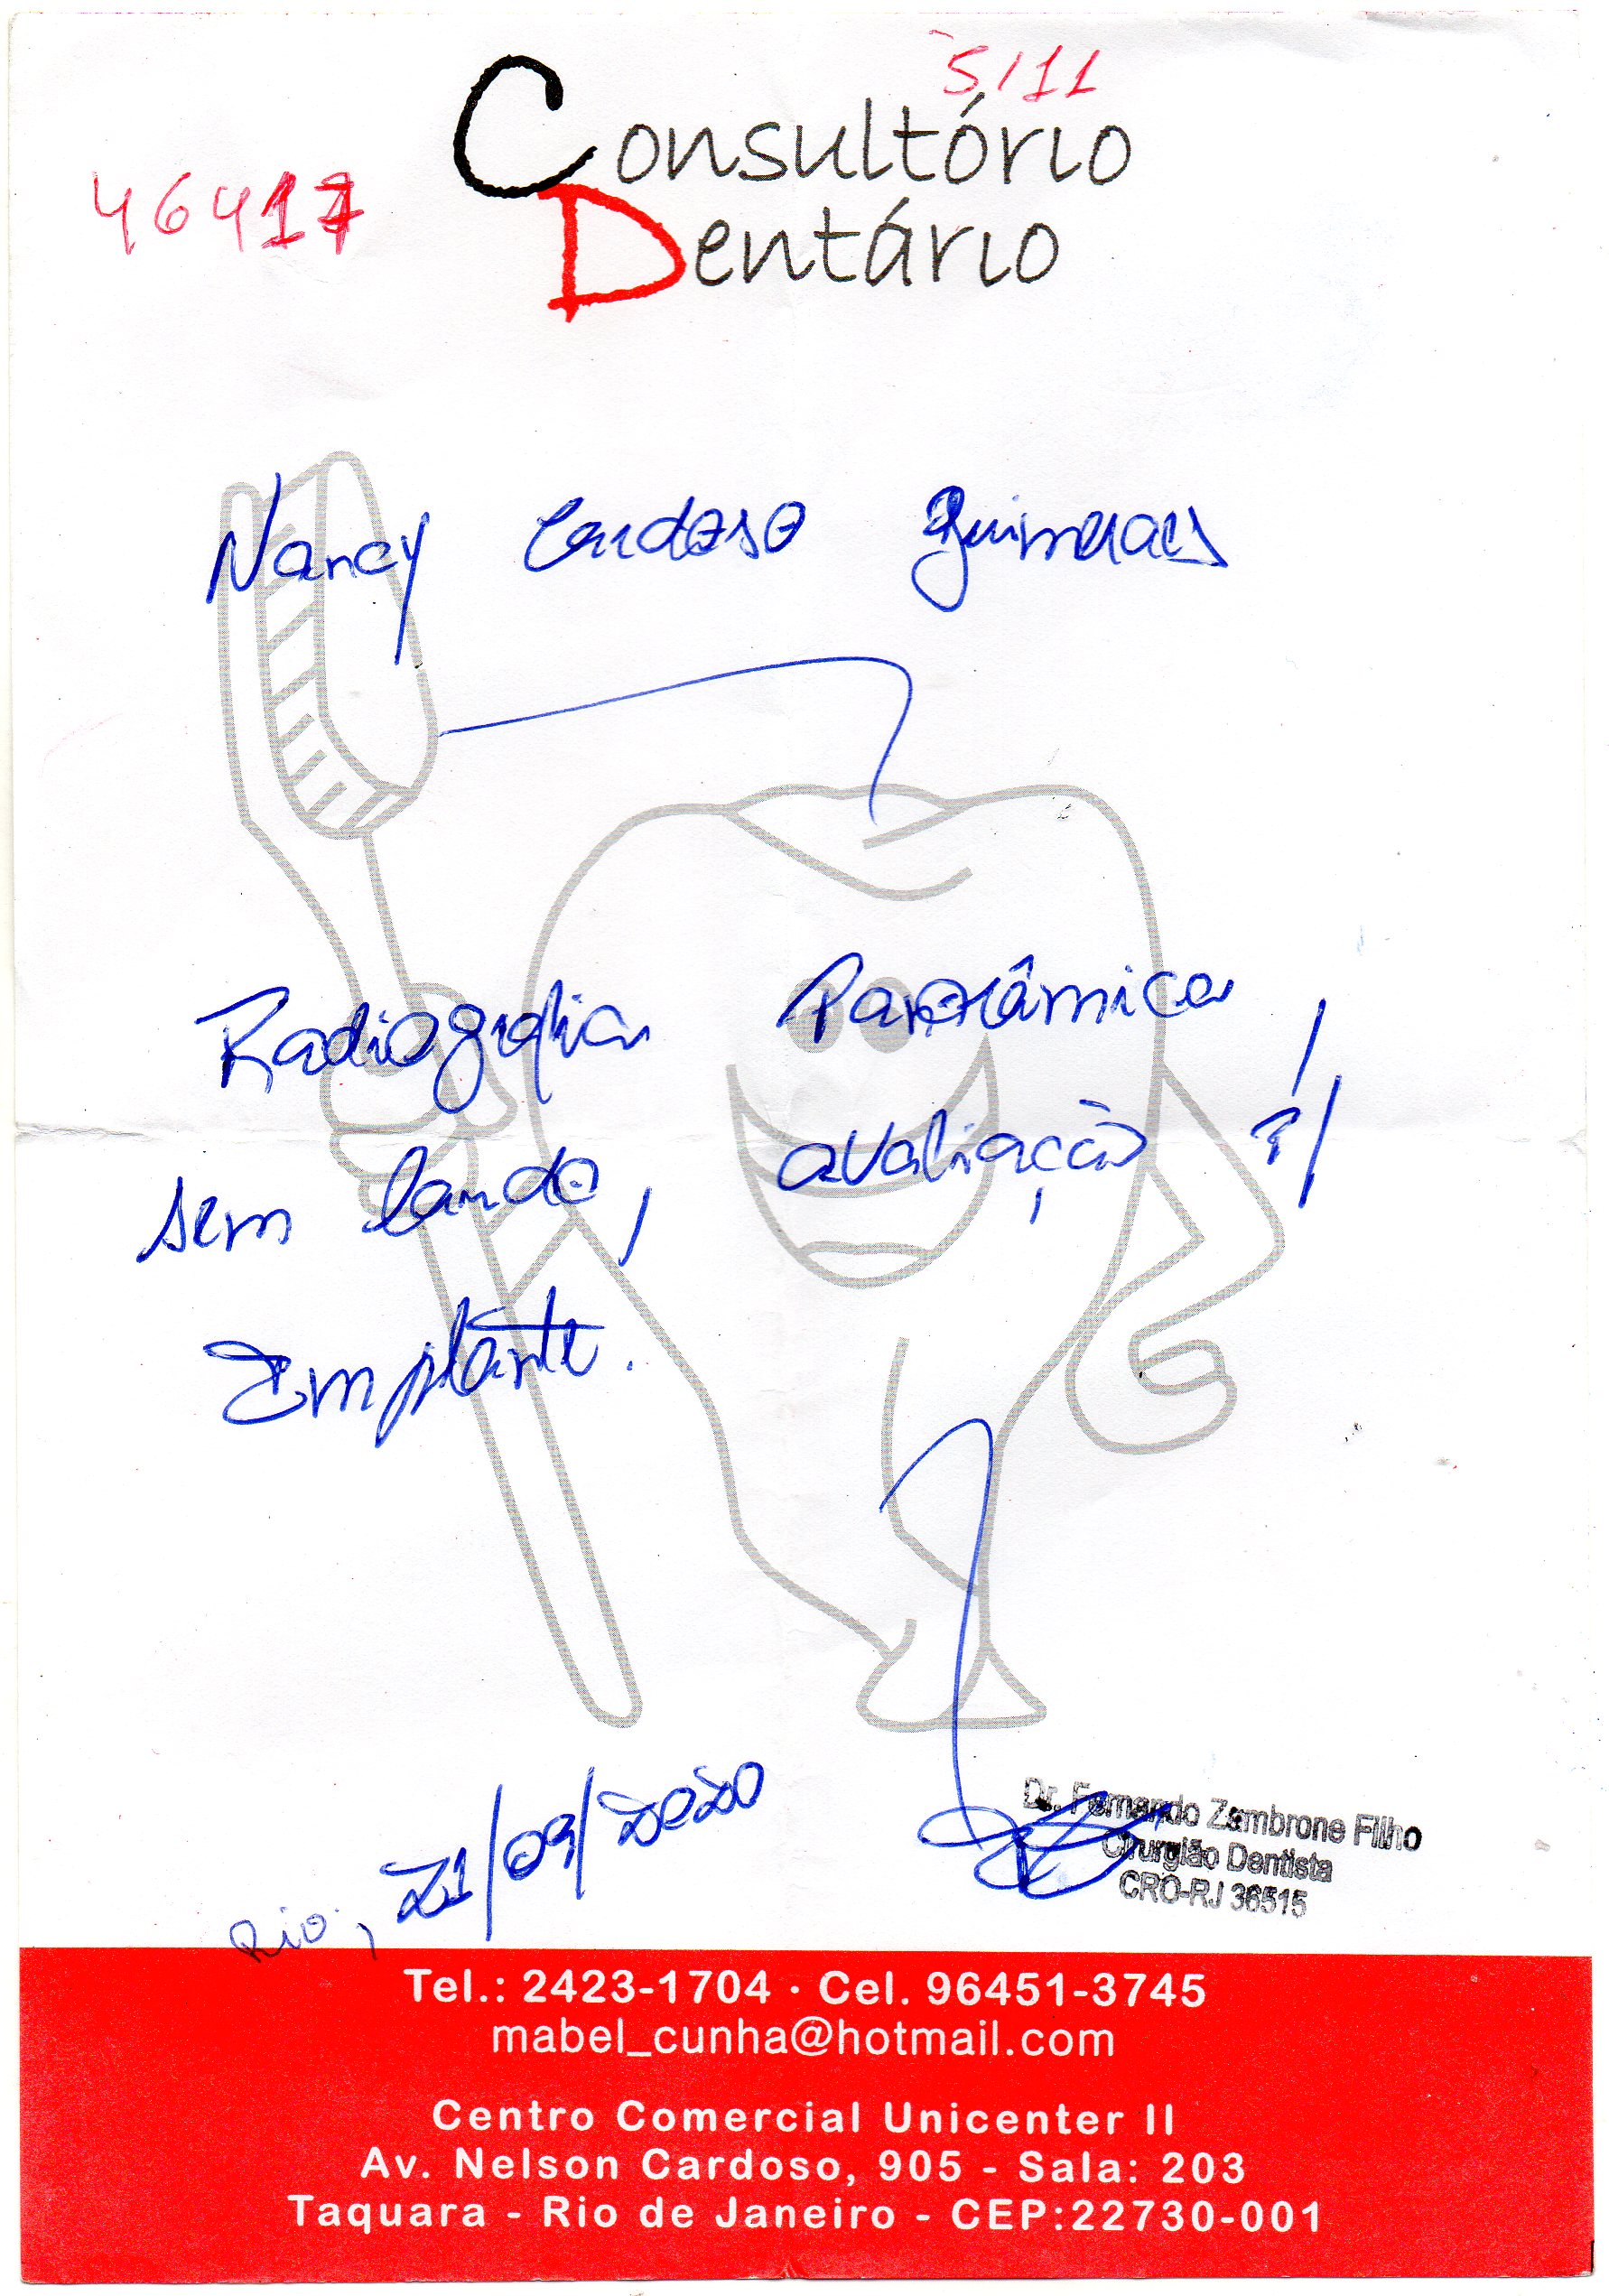 5/11
Consultório
46417
Dentário
Nancy Cardoso Guimaraes
Radiografia Panorâmica,
sem laudo, avaliação P/
Implante.
Rio, 21/09/2020
Dr. Fernando Zambrone Filho
Cirurgião Dentista
CRO-RJ 36515
Tel.: 2423-1704 · Cel. 96451-3745
mabel_cunha@hotmail.com
Centro Comercial Unicenter II
Av. Nelson Cardoso, 905 - Sala: 203
Taquara - Rio de Janeiro - CEP:22730-001